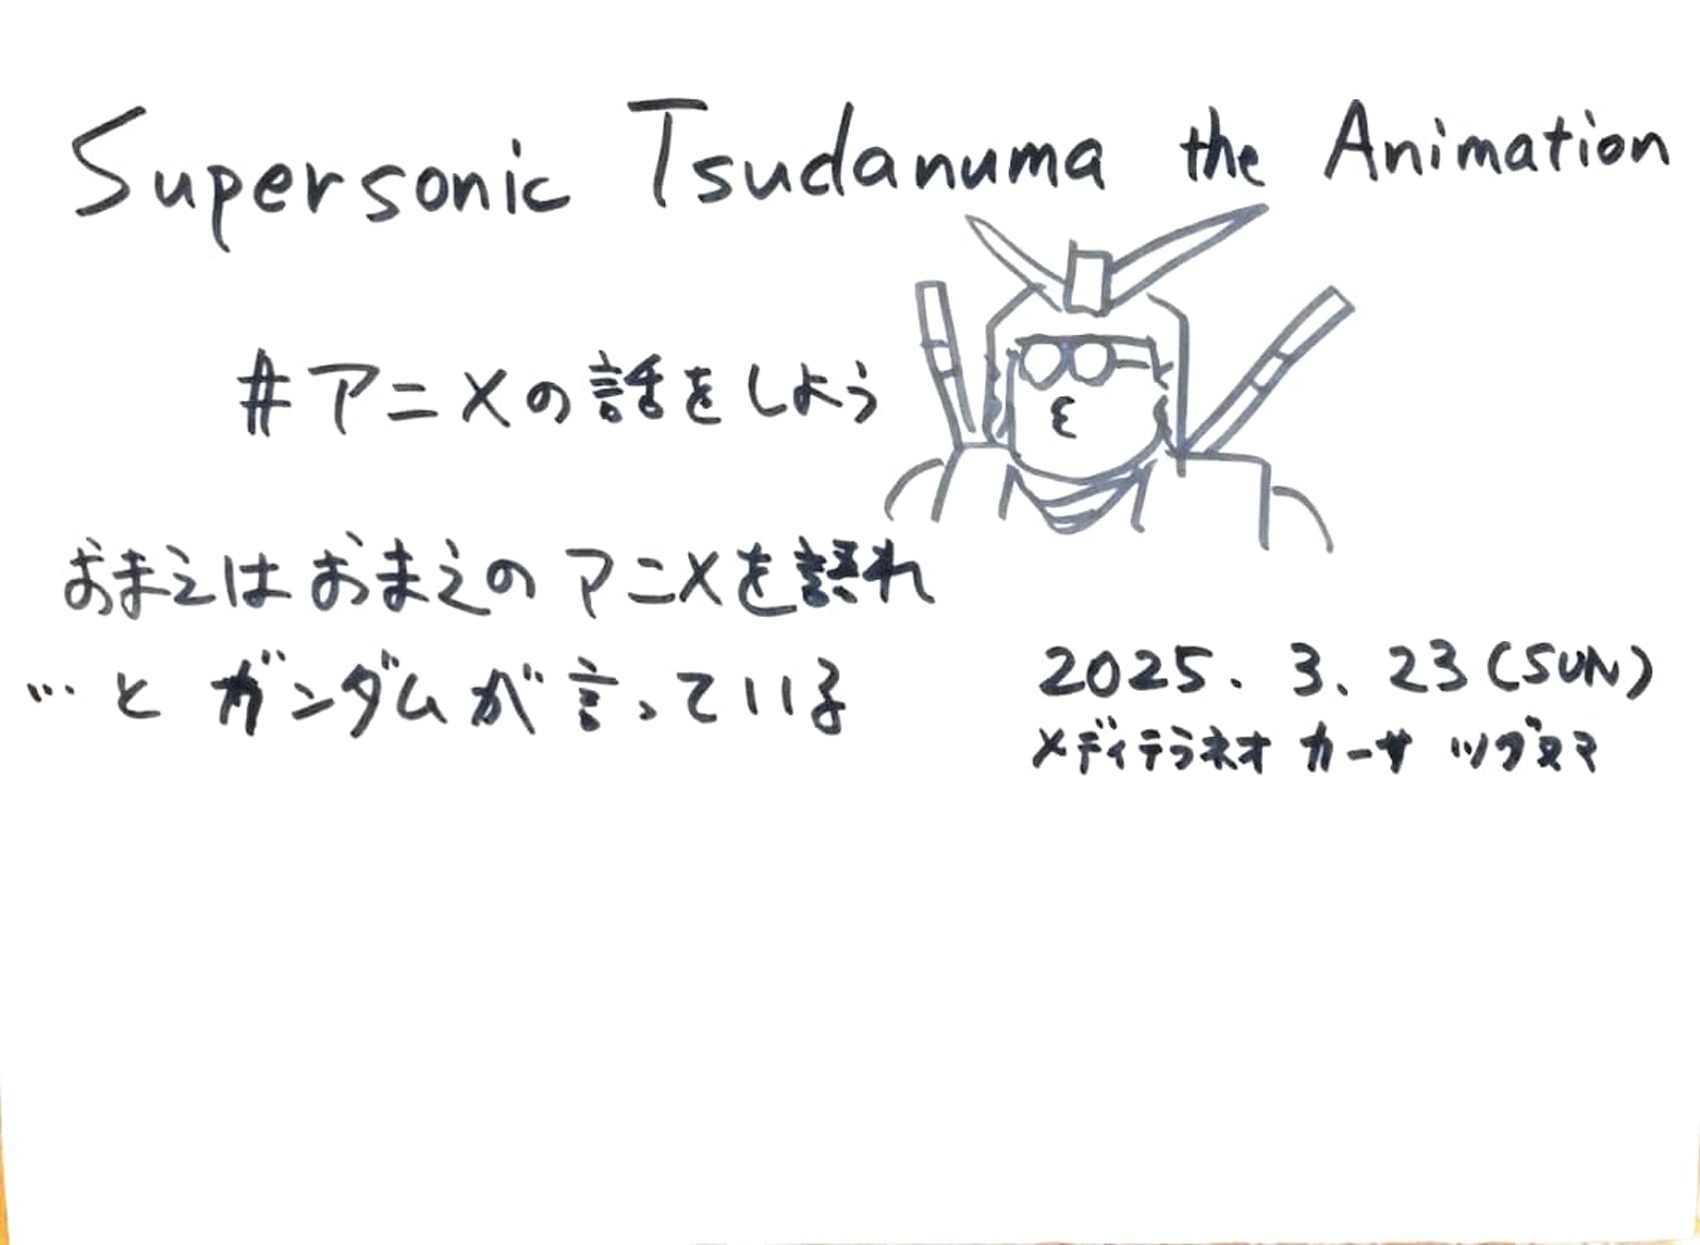 Supersonic Tsudanuma the Animation
#アニメの話をしよう
おまえはおまえのアニメを語れ
…とガンダムが言っている
2025. 3. 23 (SUN)
メディテラネオ カーサ ツダヌマ